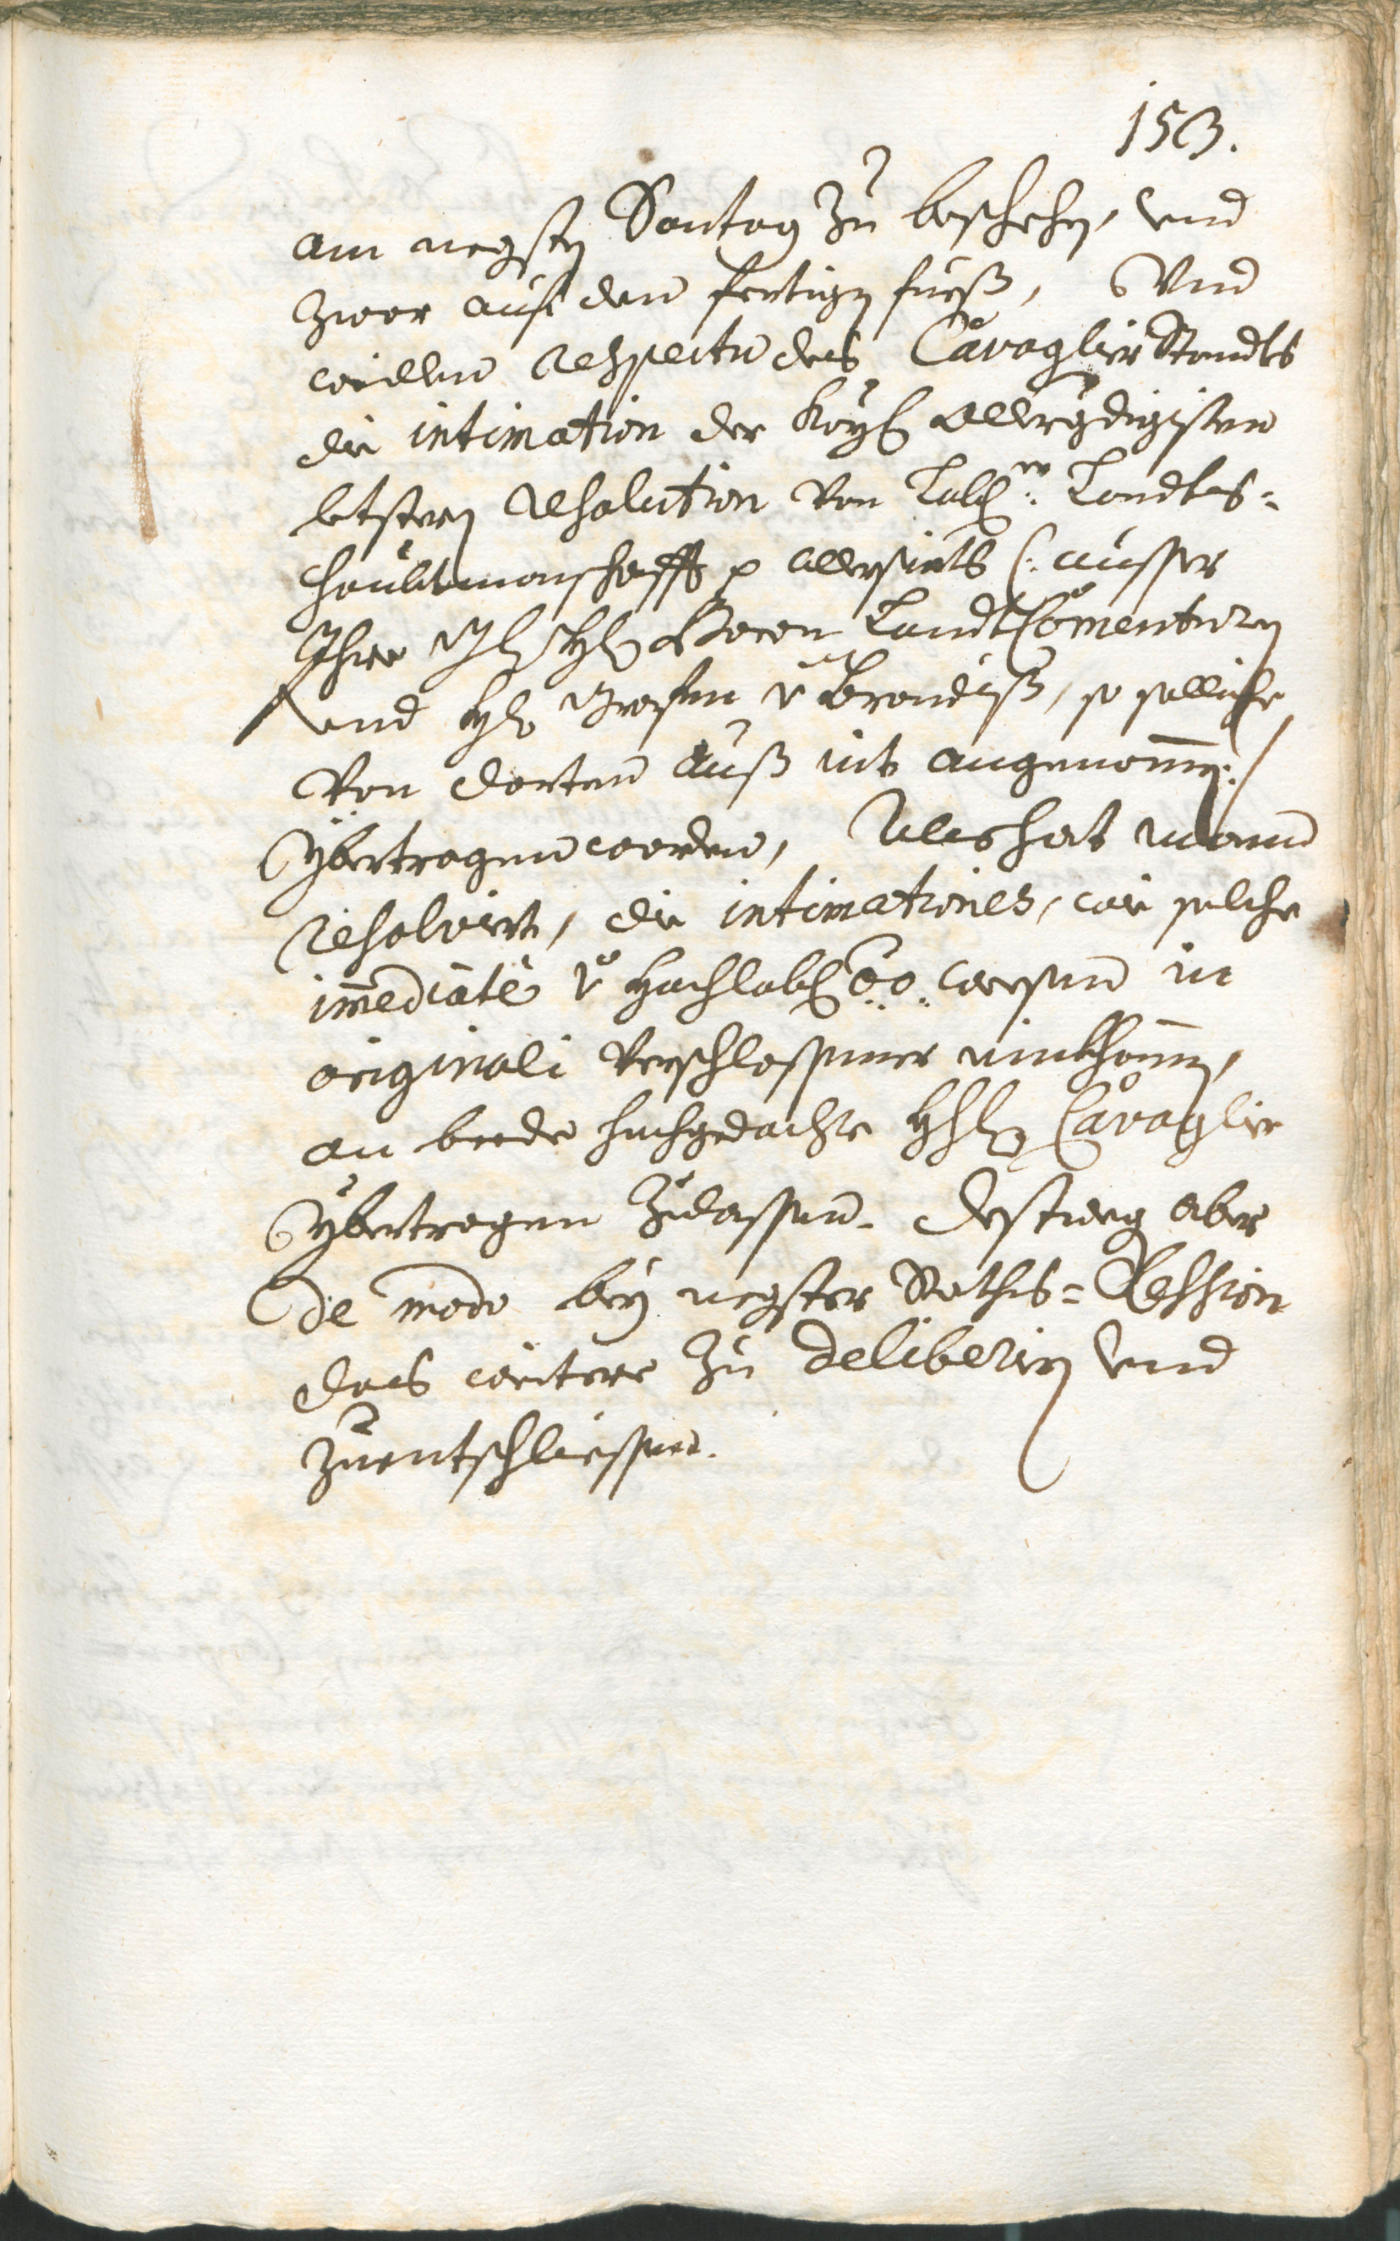 153.
am negsten Sontag zu beschehen, vnd
zwar auf den fertigen fuess, Vnd
weillen respectu des Cavaglier Standts
die intimation der Kays. allergdigisten
letstern resolution von Lobl.er Landts=
haubtmanschafft p allerseits (: ausser
Ihro Herrn Baron LandtComenturn
vnd H. Grafen v. Brandiß, so solliche
von dorten auß nit angenomen :/
ybertragen worden, Alls hat mann
resolviert, die intimationes, wie solche
immediatè v. Hochlobl. o.o. weesen in
originali verschlossner einkhomen,
an beede hochgedachte Hl. Cavaglier
ybertragen zulassen. Destweg aber
de modo bey negster Raths=Session
das weitere zu deliberirn vnd
zuentschliessen.